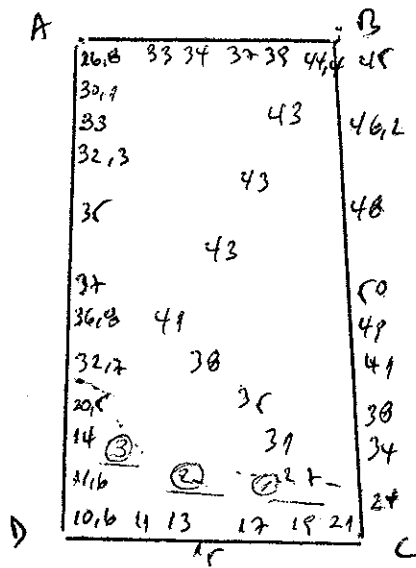 A B
26,8 33 34 37 39 44,4 45
30,1
33 43 46,2
32,3
43
35 48
43
37 50
36,8 41 49
32,7 38 41
20,5 35 38
14 3 31 34
11,6 2 27
10,6 11 13 17 19 21
D 15 C